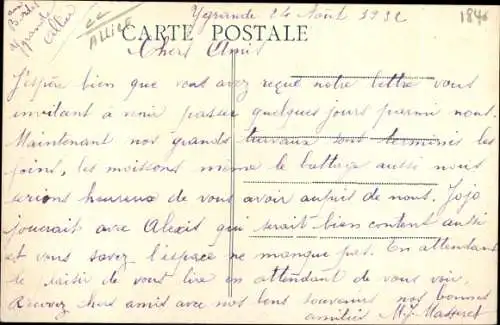 Ygrande 24 Août 1932
CARTE POSTALE
Allier
Ygrande
Allier
1840
Chers Amis
J'espère bien que vous avez reçue notre lettre vous
invitant à venir passer quelques jours parmi nous.
Maintenant nos grands travaux sont terminés les
foins, les moissons même le battage aussi nous
serions heureux de vous avoir auprès de nous. Jojo
jouerait avec Alexis qui serait bien content aussi
et vous savez l'espace ne manque pas. En attendant
le plaisir de vous lire en attendant de vous voir,
Recevez chers amis avec nos bons souvenirs nos bonnes
amitiés